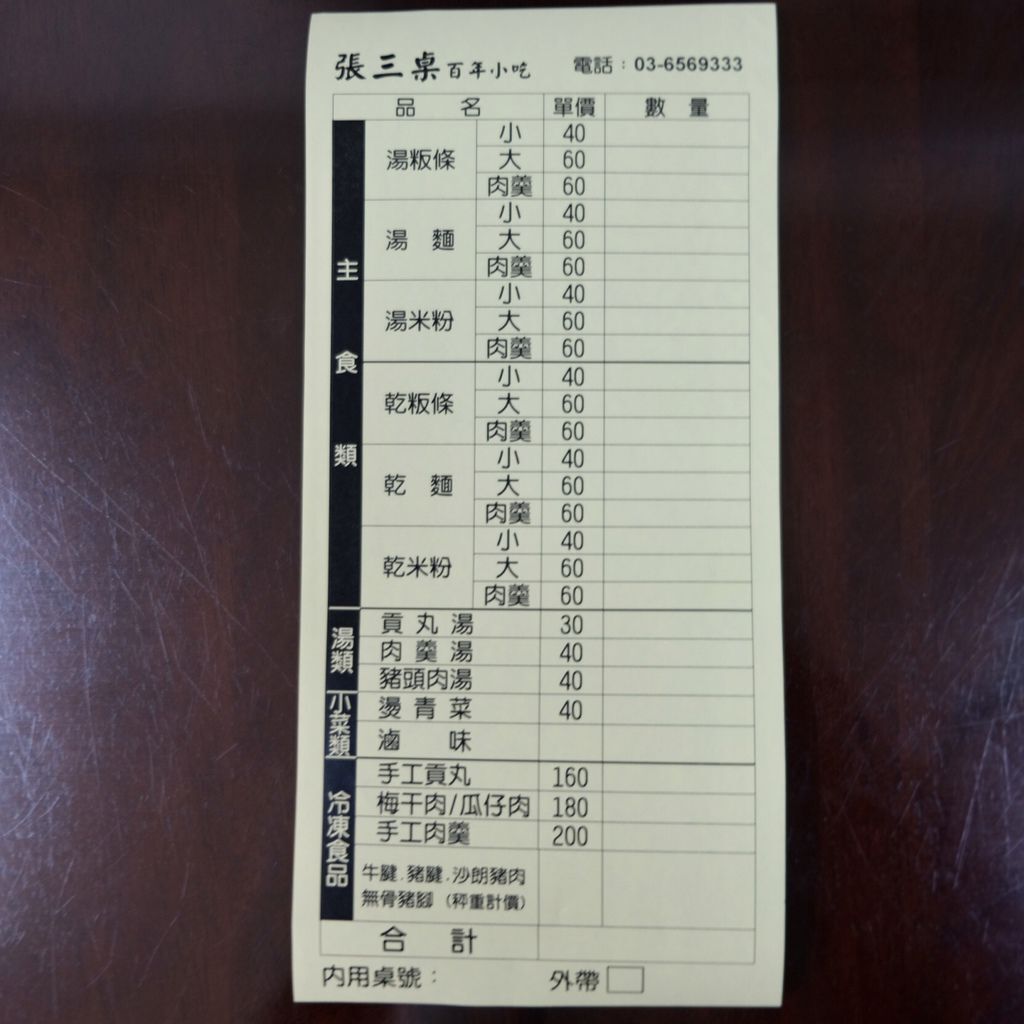 張三桌百年小吃 電話：03-6569333
品 名 單價 數 量
主食類
湯粄條 小 40
大 60
肉羹 60
湯 麵 小 40
大 60
肉羹 60
湯米粉 小 40
大 60
肉羹 60
乾粄條 小 40
大 60
肉羹 60
乾 麵 小 40
大 60
肉羹 60
乾米粉 小 40
大 60
肉羹 60
湯類
貢丸湯 30
肉羹湯 40
豬頭肉湯 40
小菜類
燙青菜 40
滷 味
冷凍食品
手工貢丸 160
梅干肉/瓜仔肉 180
手工肉羹 200
牛腱.豬腱.沙朗豬肉
無骨豬腳（秤重計價）
合 計
內用桌號： 外帶